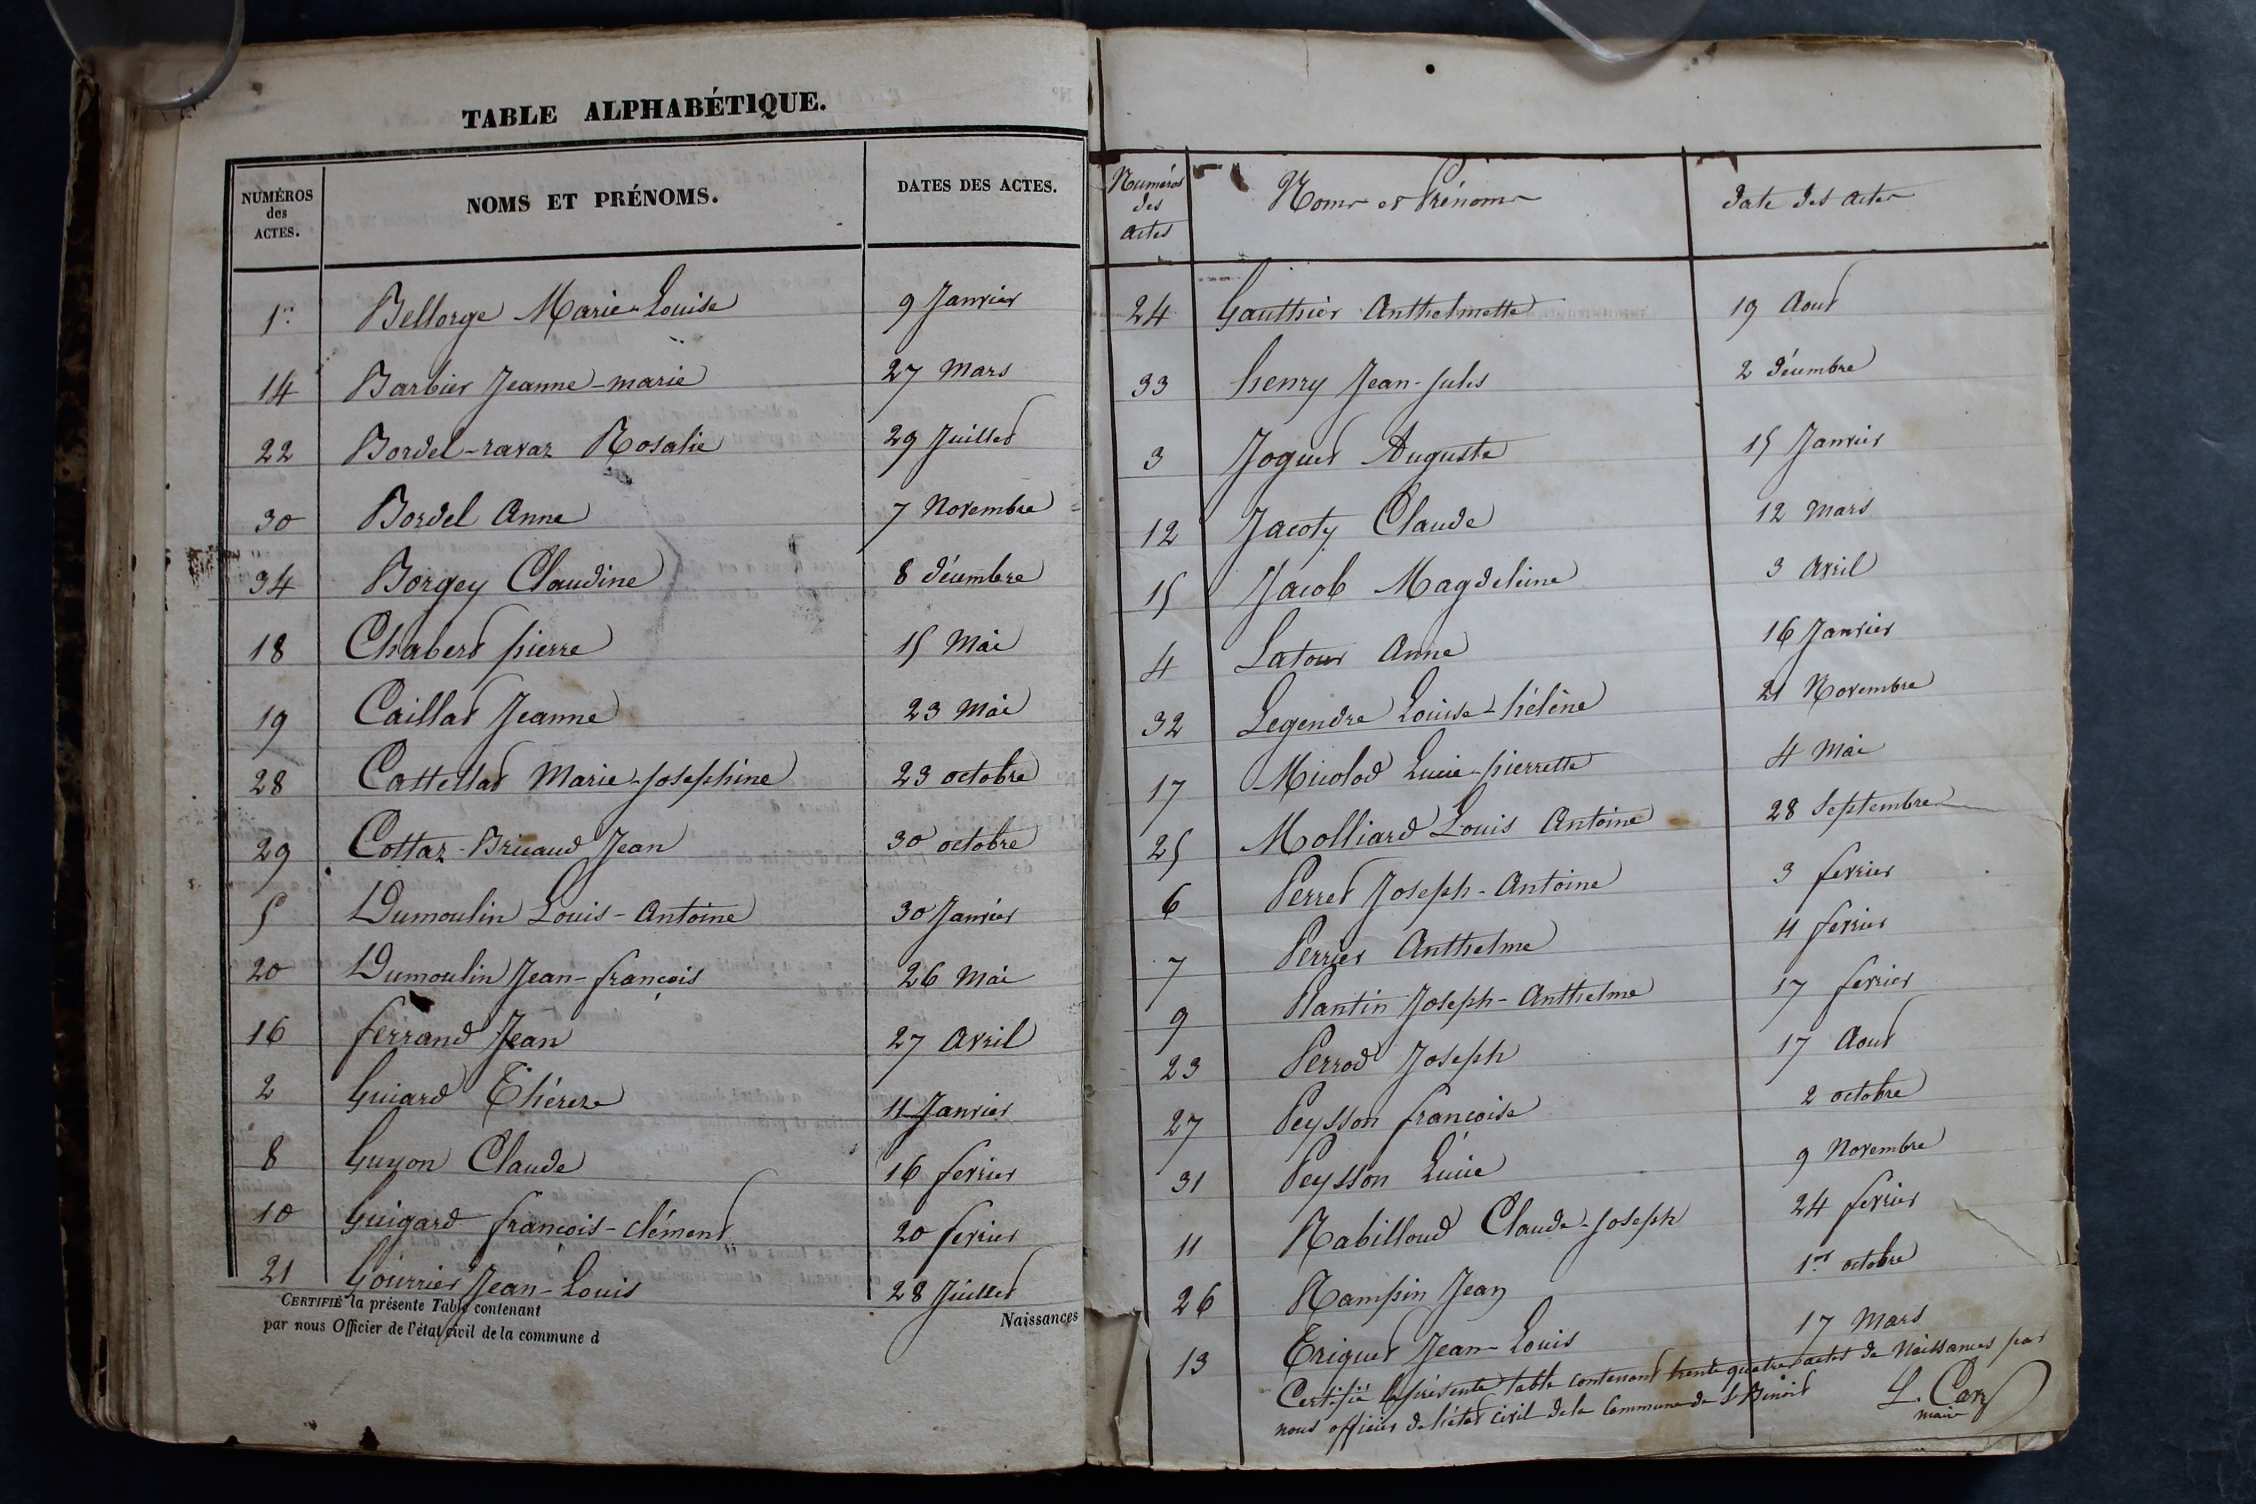 TABLE ALPHABÉTIQUE.
NUMÉROS des ACTES. NOMS ET PRÉNOMS. DATES DES ACTES.
1er Bellorge Marie-Louise 9 Janvier
14 Barbier Jeanne-marie 27 Mars
22 Bordel-ravaz Rosalie 29 Juillet
30 Bordel Anne 7 Novembre
34 Borgey Claudine 8 décembre
18 Chabert pierre 15 Mai
19 Caillat Jeanne 23 Mai
28 Cattellat Marie-Josephine 23 octobre
29 Cottaz-Bricaud Jean 30 octobre
5 Dumoulin Louis-Antoine 30 Janvier
20 Dumoulin Jean-françois 26 Mai
16 ferrand Jean 27 Avril
2 Guiard Thérèze 11 Janvier
8 Guyon Claude 16 fevrier
10 Guigard francois-clément 20 fevrier
21 Gourrier Jean-Louis 28 Juillet
CERTIFIÉ la présente Table contenant Naissances
par nous Officier de l'état civil de la commune d
Numéros des Actes Noms et Prénoms date des actes
24 Gauthier Anthelmette 19 Aout
33 henry Jean-Jules 2 décembre
3 Joguet Auguste 15 Janvier
12 Jacoty Claude 12 Mars
15 Jacob Magdeleine 3 Avril
4 Latour Anne 16 Janvier
32 Legendre Louise-hélène 21 Novembre
17 Micolod Lucie-pierrette 4 Mai
25 Molliard Louis Antoine 28 Septembre
6 Perret Joseph-Antoine 3 fevrier
7 Perrier Anthelme 11 fevrier
9 Plantin Joseph-Anthelme 17 fevrier
23 Perrod Joseph 17 Aout
27 Peysson francoise 2 octobre
31 Peysson Lucie 9 Novembre
11 Rabilloud Claude-Joseph 24 fevrier
26 Rampin Jean 1er octobre
13 Triguet Jean-Louis 17 Mars
Certifié la présente table contenant trente quatre actes de Naissances par
nous officier de l'état civil de la Commune de St Benoit
maire